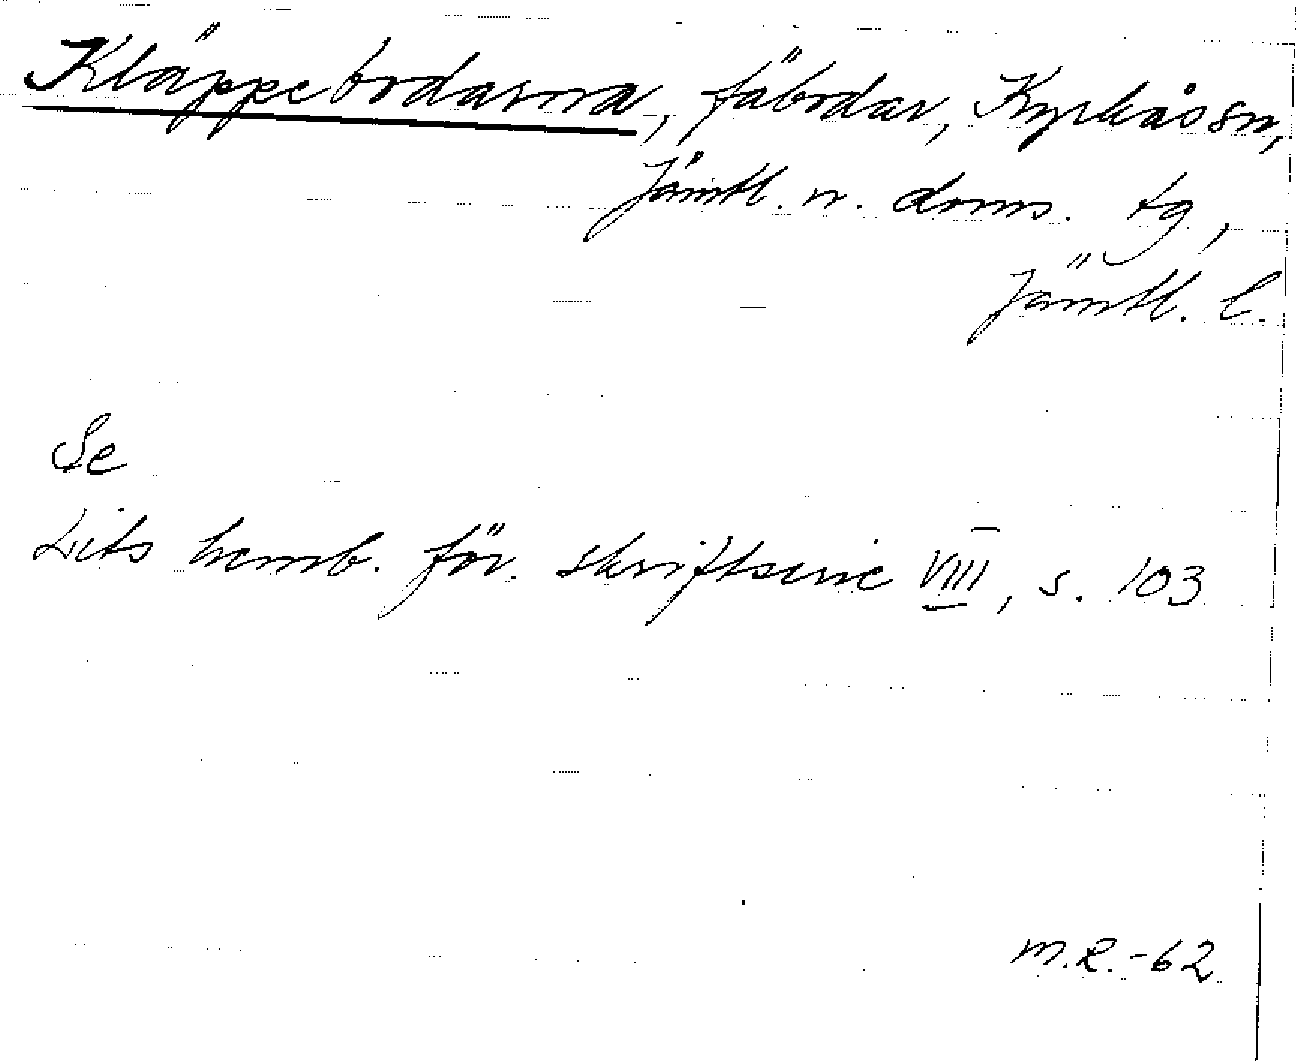 Kläppebodarna, fäbodar, Kyrkås sn,
Jämtl. n. doms. tg,
Jämtl. l.
Se
Lits hemb. för. skriftserie VIII, s. 103
M.R.-62